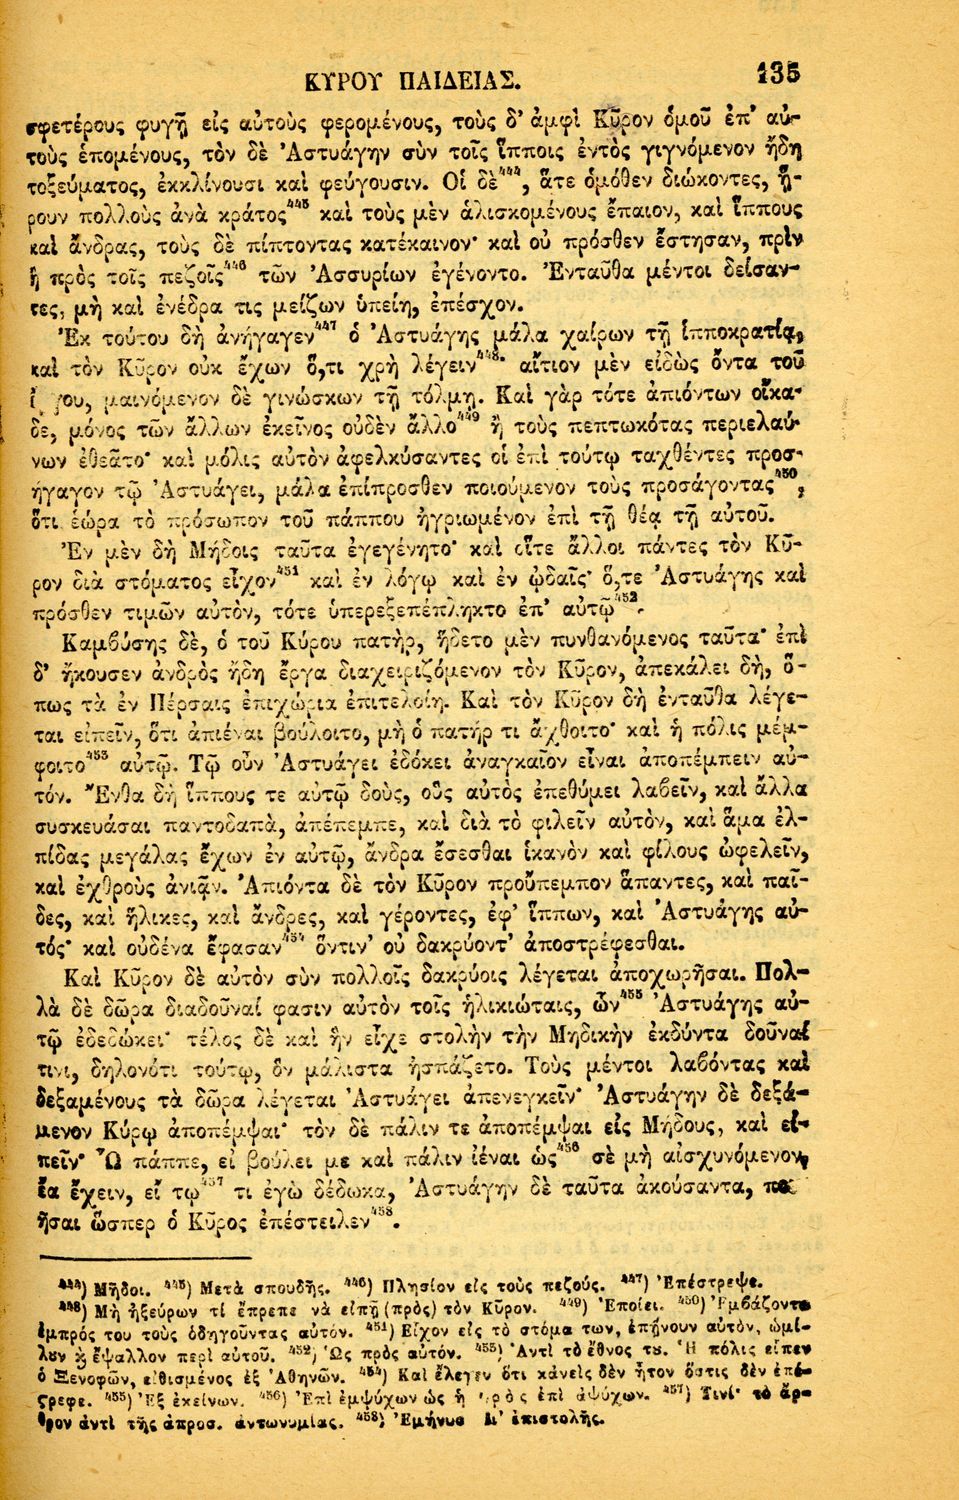 ΚΥΡΟΥ ΠΑΙΔΕΙΑΣ.
135
σφετέρους φυγῇ εἰς αὑτοὺς φερομένους, τοὺς δ' ἀμφὶ Κῦρον ὁμοῦ ἐπ' αὐ-
τοὺς ἑπομένους, τὸν δὲ Ἀστυάγην σὺν τοῖς ἵπποις ἐντὸς γιγνόμενον ἤδη
τοξεύματος, ἐκκλίνουσι καὶ φεύγουσιν. Οἱ δὲ⁴⁴⁴, ἅτε ὁμόθεν διώκοντες, ᾕ-
ρουν πολλοὺς ἀνὰ κράτος⁴⁴⁵ καὶ τοὺς μὲν ἁλισκομένους ἔπαιον, καὶ ἵππους
καὶ ἄνδρας, τοὺς δὲ πίπτοντας κατέκαινον· καὶ οὐ πρόσθεν ἔστησαν, πρὶν
ἢ πρὸς τοῖς πεζοῖς⁴⁴⁶ τῶν Ἀσσυρίων ἐγένοντο. Ἐνταῦθα μέντοι δείσαν-
τες, μὴ καὶ ἐνέδρα τις μείζων ὑπείη, ἐπέσχον.
Ἐκ τούτου δὴ ἀνήγαγεν⁴⁴⁷ ὁ Ἀστυάγης μάλα χαίρων τῇ ἱπποκρατίᾳ,
καὶ τὸν Κῦρον οὐκ ἔχων ὅ,τι χρὴ λέγειν⁴⁴⁸· αἴτιον μὲν εἰδὼς ὄντα τοῦ
ἔργου, μαινόμενον δὲ γινώσκων τῇ τόλμῃ. Καὶ γὰρ τότε ἀπιόντων οἴκα-
δε, μόνος τῶν ἄλλων ἐκεῖνος οὐδὲν ἄλλο⁴⁴⁹ ἢ τοὺς πεπτωκότας περιελαύ-
νων ἐθεᾶτο· καὶ μόλις αὐτὸν ἀφελκύσαντες οἱ ἐπὶ τούτῳ ταχθέντες προσ-
ήγαγον τῷ Ἀστυάγει, μάλα ἐπίπροσθεν ποιούμενον τοὺς προσάγοντας⁴⁵⁰,
ὅτι ἑώρα τὸ πρόσωπον τοῦ πάππου ἠγριωμένον ἐπὶ τῇ θέᾳ τῇ αὑτοῦ.
Ἐν μὲν δὴ Μήδοις ταῦτα ἐγεγένητο· καὶ οἵτε ἄλλοι πάντες τὸν Κῦ-
ρον διὰ στόματος εἶχον⁴⁵¹ καὶ ἐν λόγῳ καὶ ἐν ᾠδαῖς· ὅ,τε Ἀστυάγης καὶ
πρόσθεν τιμῶν αὐτὸν, τότε ὑπερεξεπέπληκτο ἐπ' αὐτῷ⁴⁵².
Καμβύσης δὲ, ὁ τοῦ Κύρου πατὴρ, ἥδετο μὲν πυνθανόμενος ταῦτα· ἐπὶ
δ' ἤκουσεν ἀνδρὸς ἤδη ἔργα διαχειριζόμενον τὸν Κῦρον, ἀπεκάλει δὴ, ὅ-
πως τὰ ἐν Πέρσαις ἐπιχώρια ἐπιτελοίη. Καὶ τὸν Κῦρον δὴ ἐνταῦθα λέγε-
ται εἰπεῖν, ὅτι ἀπιέναι βούλοιτο, μὴ ὁ πατήρ τι ἄχθοιτο· καὶ ἡ πόλις μέμ-
φοιτο⁴⁵³ αὐτῷ. Τῷ οὖν Ἀστυάγει ἐδόκει ἀναγκαῖον εἶναι ἀποπέμπειν αὐ-
τόν. Ἔνθα δὴ ἵππους τε αὐτῷ δοὺς, οὓς αὐτὸς ἐπεθύμει λαβεῖν, καὶ ἄλλα
συσκευάσαι παντοδαπὰ, ἀπέπεμπε, καὶ διὰ τὸ φιλεῖν αὐτὸν, καὶ ἅμα ἐλ-
πίδας μεγάλας ἔχων ἐν αὐτῷ, ἄνδρα ἔσεσθαι ἱκανὸν καὶ φίλους ὠφελεῖν,
καὶ ἐχθροὺς ἀνιᾷν. Ἀπιόντα δὲ τὸν Κῦρον προὔπεμπον ἅπαντες, καὶ παῖ-
δες, καὶ ἥλικες, καὶ ἄνδρες, καὶ γέροντες, ἐφ' ἵππων, καὶ Ἀστυάγης αὐ-
τός· καὶ οὐδένα ἔφασαν⁴⁵⁴ ὅντιν' οὐ δακρύοντ' ἀποστρέφεσθαι.
Καὶ Κῦρον δὲ αὐτὸν σὺν πολλοῖς δακρύοις λέγεται ἀποχωρῆσαι. Πολ-
λὰ δὲ δῶρα διαδοῦναί φασιν αὐτὸν τοῖς ἡλικιώταις, ὧν⁴⁵⁵ Ἀστυάγης αὐ-
τῷ ἐδεδώκει· τέλος δὲ καὶ ἣν εἶχε στολὴν τὴν Μηδικὴν ἐκδύντα δοῦναί
τινι, δηλονότι τούτῳ, ὃν μάλιστα ἠσπάζετο. Τοὺς μέντοι λαβόντας καὶ
δεξαμένους τὰ δῶρα λέγεται Ἀστυάγει ἀπενεγκεῖν· Ἀστυάγην δὲ δεξά-
μενον Κύρῳ ἀποπέμψαι· τὸν δὲ πάλιν τε ἀποπέμψαι εἰς Μήδους, καὶ εἰ-
πεῖν· Ὦ πάππε, εἰ βούλει με καὶ πάλιν ἰέναι ὡς⁴⁵⁶ σὲ μὴ αἰσχυνόμενον,
ἔα ἔχειν, εἴ τῳ⁴⁵⁷ τι ἐγὼ δέδωκα, Ἀστυάγην δὲ ταῦτα ἀκούσαντα, ποι
ῆσαι ὥσπερ ὁ Κῦρος ἐπέστειλεν⁴⁵⁸.
⁴⁴⁴) Μῆδοι. ⁴⁴⁵) Μετὰ σπουδῆς. ⁴⁴⁶) Πλησίον εἰς τοὺς πεζούς. ⁴⁴⁷) Ἐπέστρεψε.
⁴⁴⁸) Μὴ ἠξεύρων τί ἔπρεπε νὰ εἰπῇ (πρὸς) τὸν Κῦρον. ⁴⁴⁹) Ἐποίει. ⁴⁵⁰) Ἐμβάζοντα
ἐμπρός του τοὺς ὁδηγοῦντας αὐτόν. ⁴⁵¹) Εἶχον εἰς τὸ στόμα των, ἐπῄνουν αὐτὸν, ὡμί-
λουν ϗ ἔψαλλον περὶ αὐτοῦ. ⁴⁵²) Ὡς πρὸς αὐτόν. ⁴⁵³) Ἀντὶ τὸ ἔθνος του. Ἡ πόλις εἶπεν
ὁ Ξενοφῶν, εἰθισμένος ἐξ Ἀθηνῶν. ⁴⁵⁴) Καὶ ἔλεγον ὅτι κἀνεὶς δὲν ἦτον ὅστις δὲν ἐπέ-
στρεφε. ⁴⁵⁵) Ἐξ ἐκείνων. ⁴⁵⁶) Ἐπὶ ἐμψύχων ὡς ἡ πρὸς ἐπὶ ἀψύχων. ⁴⁵⁷) Τινί· τὸ ἄρ-
θρον ἀντὶ τῆς ἀπροσ. ἀντωνυμίας. ⁴⁵⁸) Ἐμήνυσε δι' ἐπιστολῆς.